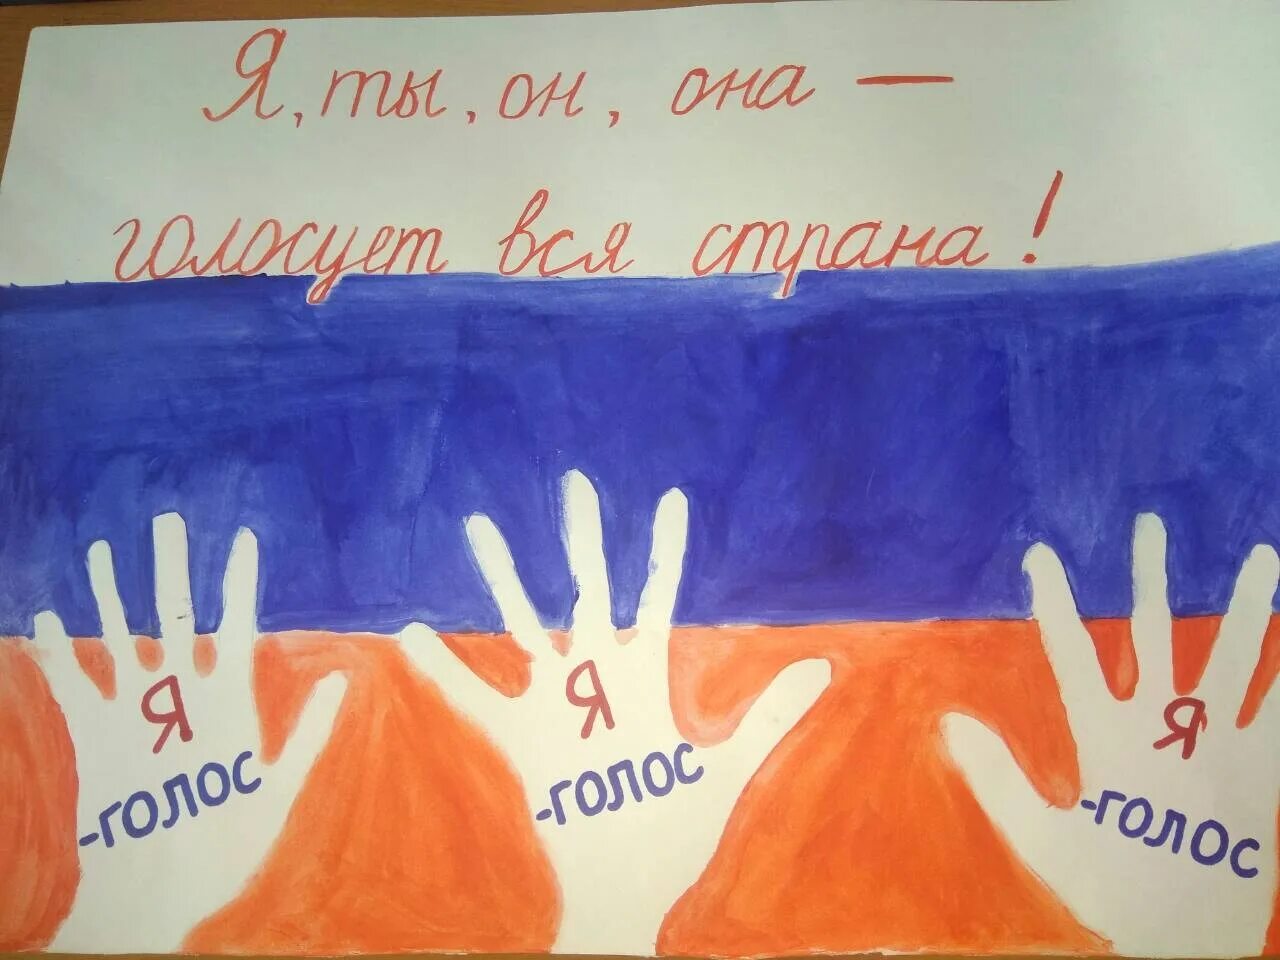 Я, ты, он, она —
голосует вся страна!
Я
-голос
Я
-голос
Я
-голос